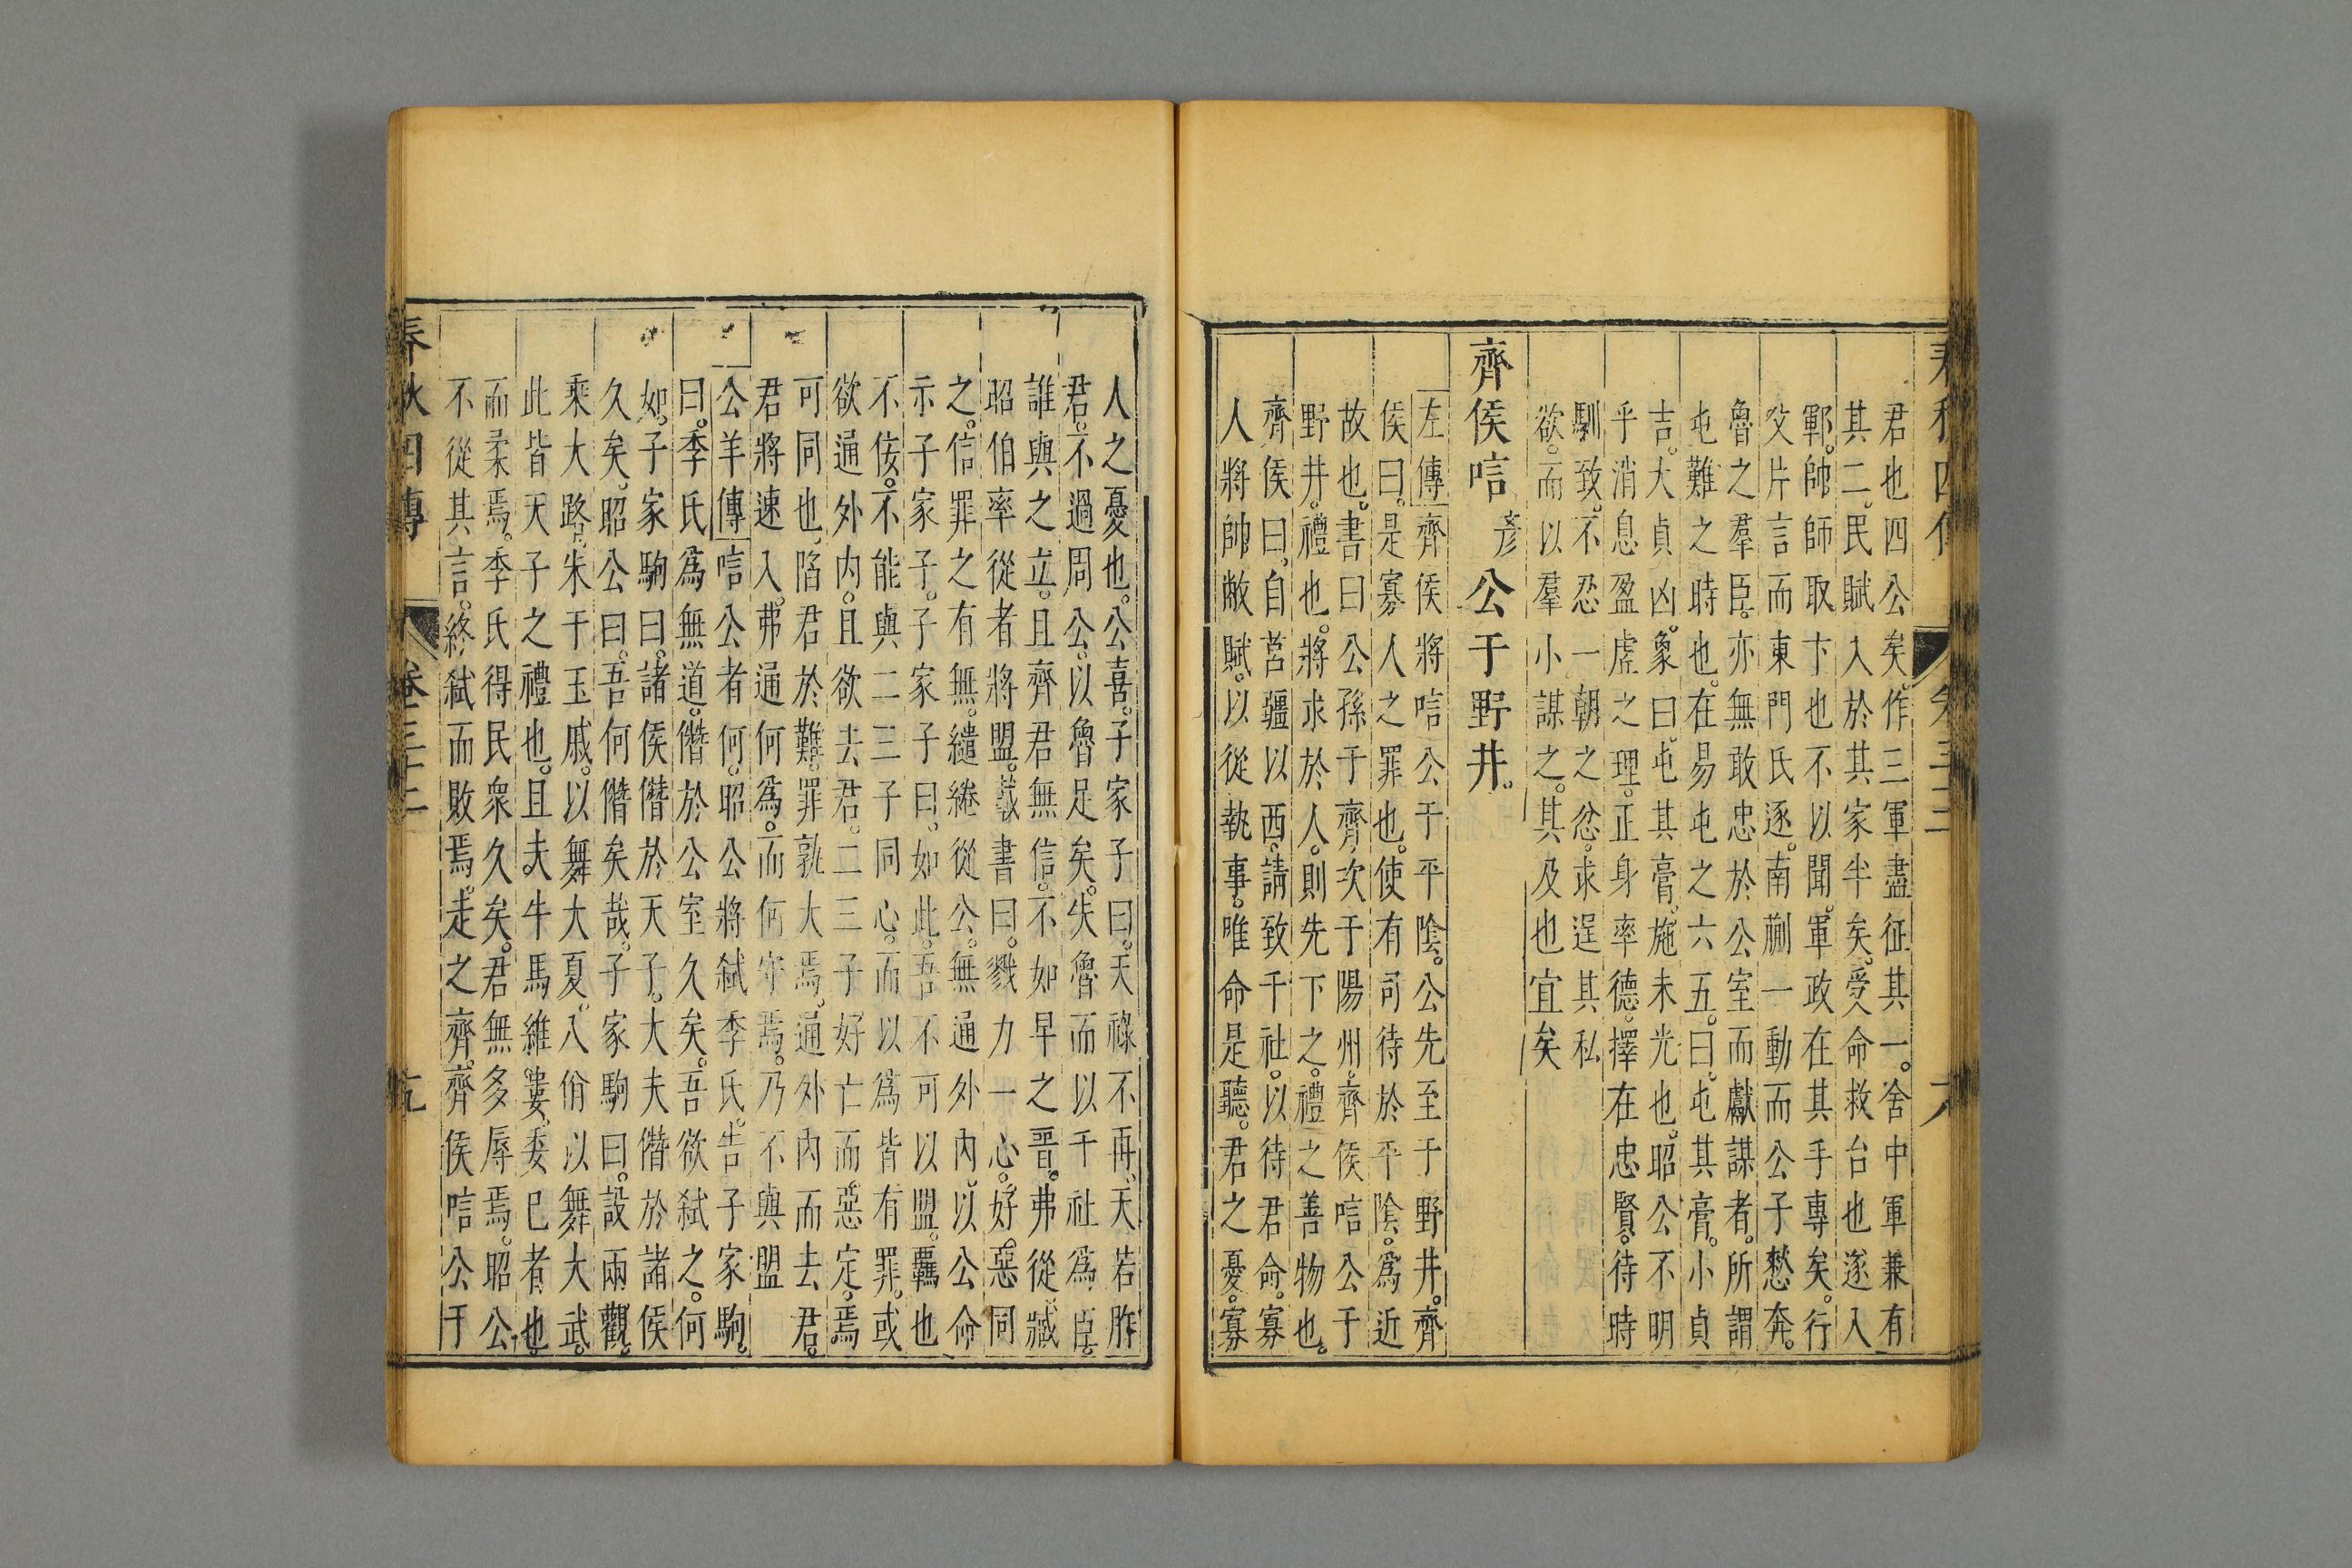 君也四公矣。作三軍盡征其一。舍中軍兼有
其二。民賦入於其家半矣。受命救台也遂入
鄆。帥師取卞也不以聞。軍政在其手專矣。行
父片言而東門氏逐。南蒯一動而公子憖奔。
魯之羣臣。亦無敢忠於公室而獻謀者。所謂
屯難之時也。在易屯之六五。曰。屯其膏。小貞
吉。大貞凶。象曰。屯其膏。施未光也。昭公不明
乎消息盈虛之理。正身率德。擇在忠賢。待時
馴致。不忍一朝之忿。求逞其私
欲。而以羣小謀之。其及也宜矣
齊侯唁彦公于野井。
左傳齊侯將唁公于平陰。公先至于野井。齊
侯曰。是寡人之罪也。使有司待於平陰。爲近
故也。書曰公孫于齊。次于陽州。齊侯唁公于
野井。禮也。將求於人。則先下之。禮之善物也。
齊侯曰。自莒疆以西。請致千社。以待君命。寡
人將帥敝賦。以從執事。唯命是聽。君之憂。寡
人之憂也。公喜。子家子曰。天祿不再。天若胙
君。不過周公。以魯足矣。失魯而以千社爲臣。
誰與之立。且齊君無信。不如早之晉。弗從。臧
昭伯率從者將盟。載書曰。戮力一心。好惡同
之。信罪之有無。繾綣從公。無通外內。以公命
示子家子。子家子曰。如此。吾不可以盟。羈也
不佞。不能與二三子同心。而以爲皆有罪。或
欲通外內。且欲去君。二三子好亡而惡定。焉
可同也。陷君於難。罪孰大焉。通外內而去君。
君將速入。弗通何爲。而何守焉。乃不與盟
公羊傳唁公者何。昭公將弑季氏。告子家駒。
曰。季氏爲無道。僭於公室久矣。吾欲弑之。何
如。子家駒曰。諸侯僭於天子。大夫僭於諸侯
久矣。昭公曰。吾何僭矣哉。子家駒曰。設兩觀。
乘大路。朱干玉戚。以舞大夏。八佾以舞大武。
此皆天子之禮也。且夫牛馬維婁。委已者也。
而柔焉。季氏得民衆久矣。君無多辱焉。昭公
不從其言。終弑而敗焉。走之齊。齊侯唁公于
春秋四傳 卷三十二